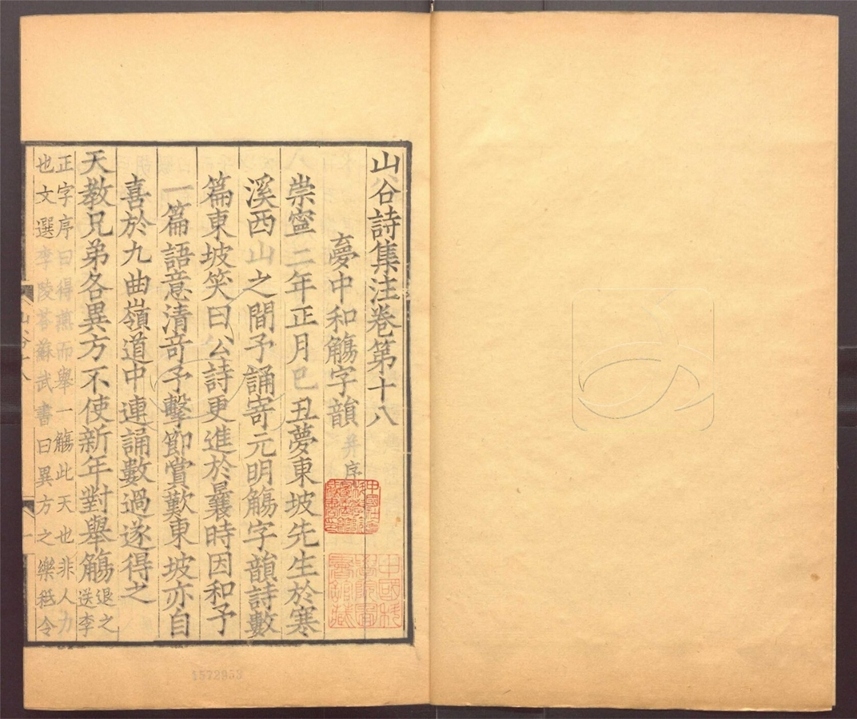 山谷詩集注卷第十八
夢中和觴字韻 并序
崇寧二年正月己丑夢東坡先生於寒
溪西山之間予誦寄元明觴字韻詩數
篇東坡笑曰公詩更進於曩時因和予
一篇語意清奇予擊節賞歎東坡亦自
喜於九曲嶺道中連誦數過遂得之
天教兄弟各異方不使新年對舉觴 退之
送李
正字序曰得燕而舉一觴此天也非人力
也文選李陵荅蘇武書曰異方之樂秪令
山谷十八
一
1572853